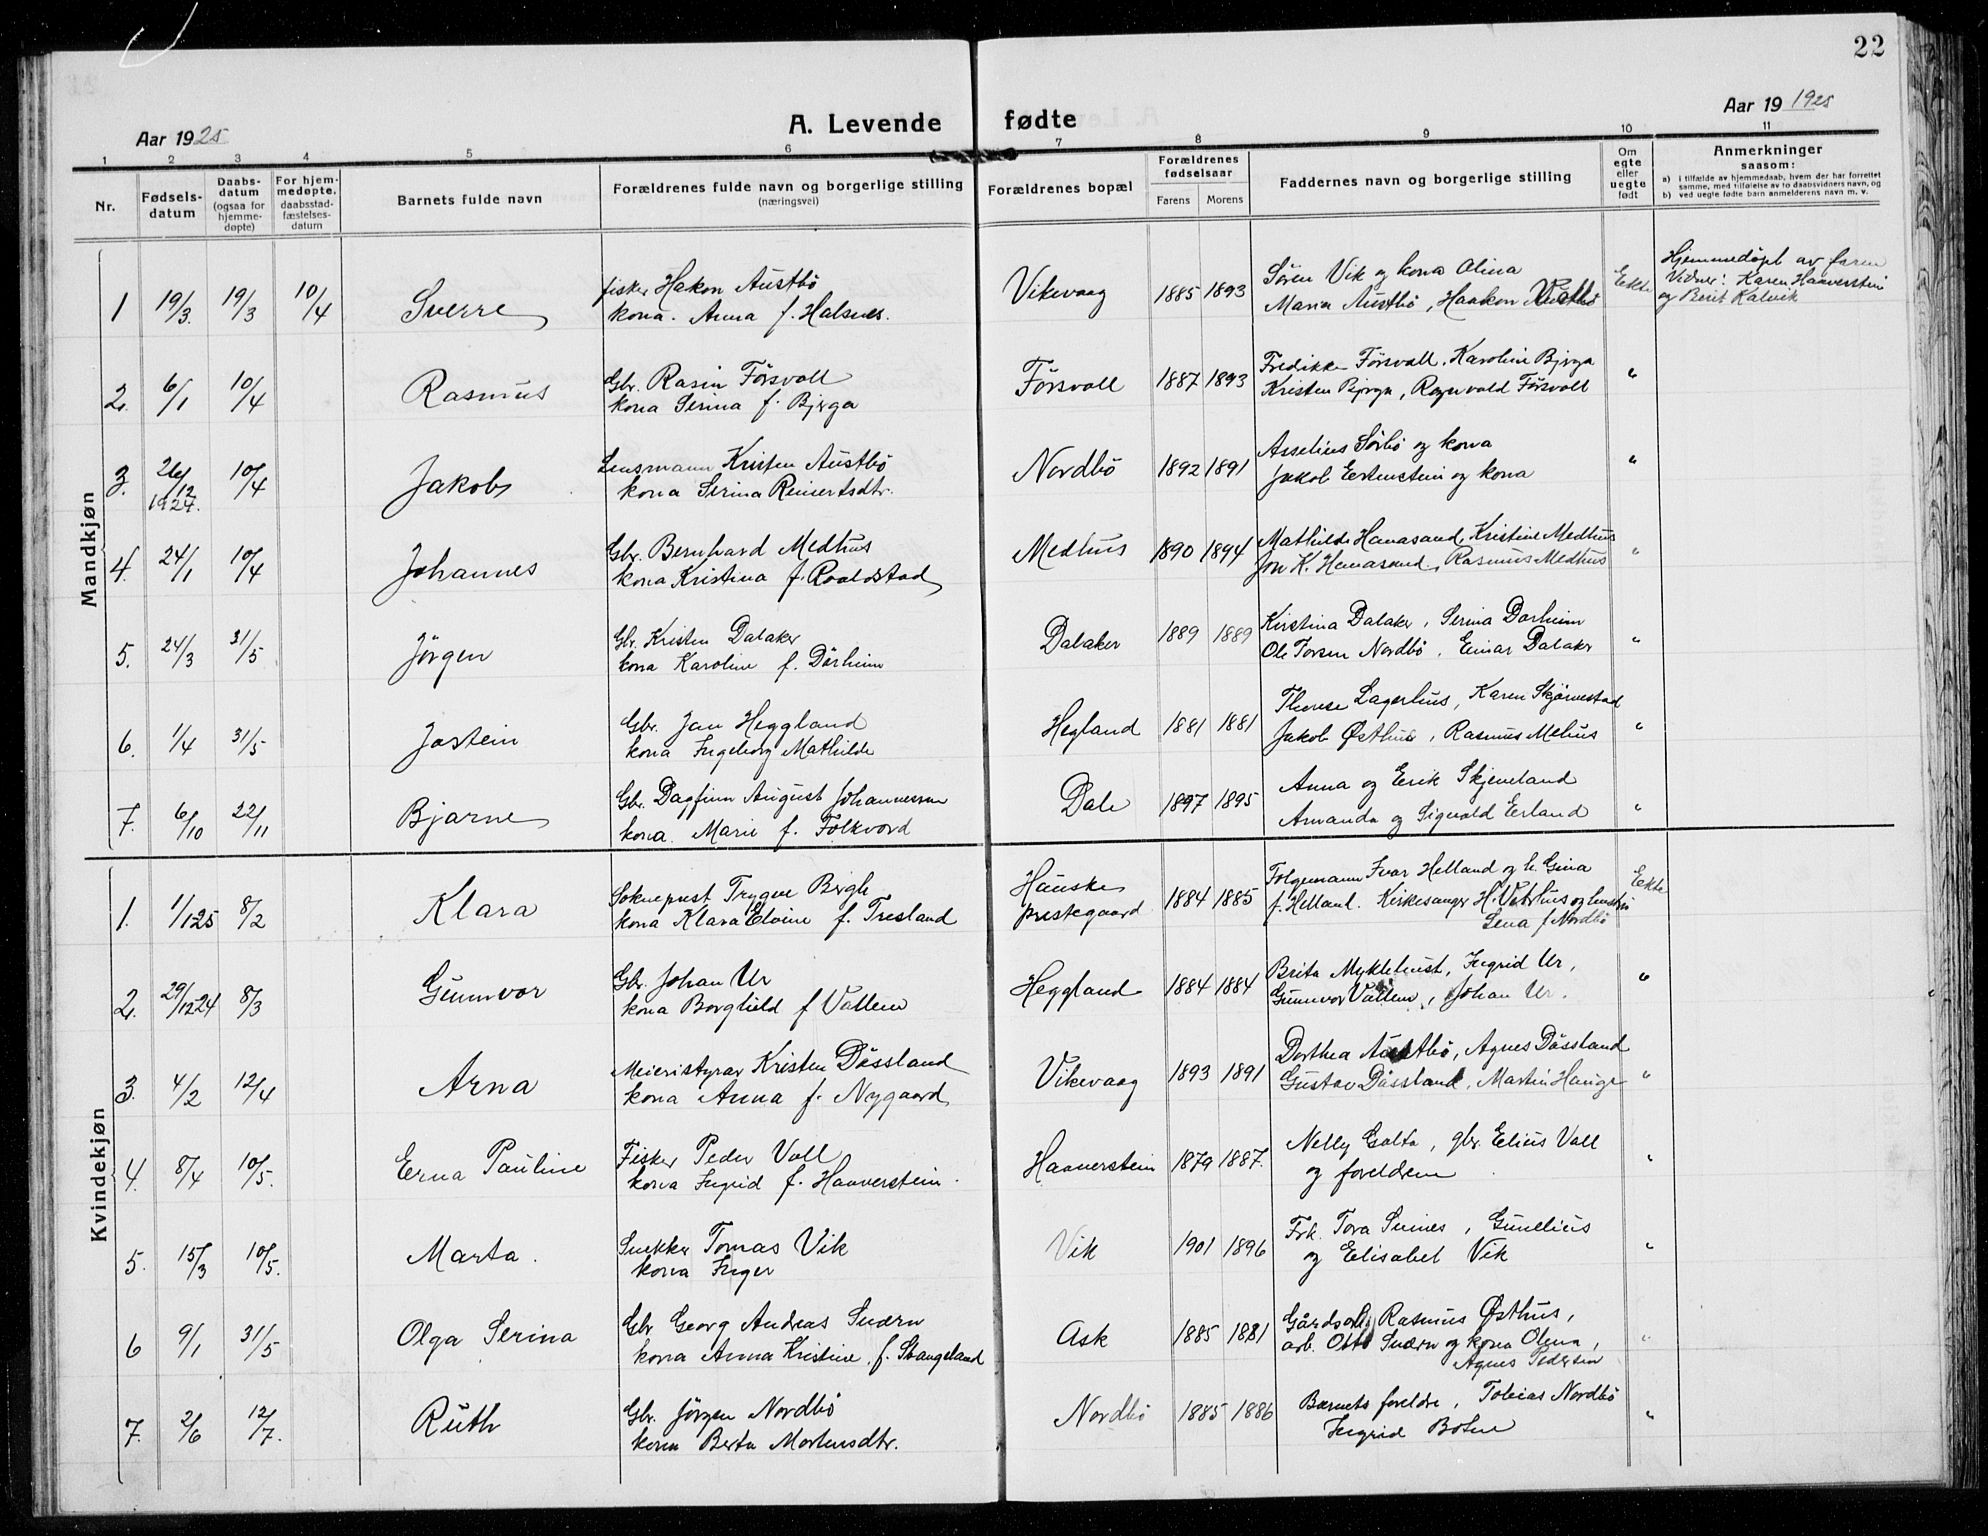 22
Aar 1925
A. Levende fødte
Aar 19 1925
1 2 3 4 5 6 7 8 9 10 11
Nr.
Fødsels-
datum
Daabs-
datum
(ogsaa for
hjemme-
døpte)
For hjem-
medøpte.
daabsstad-
fæstelses-
datum
Barnets fulde navn
Forældrenes fulde navn og borgerlige stilling
(næringsvei)
Forældrenes bopæl
Forældrenes
fødselsaar
Farens Morens
Faddernes navn og borgerlige stilling
Om
egte
eller
uegte
født
Anmerkninger
saasom:
a) i tilfælde av hjemmedaab, hvem der har forrettet
samme, med tilføielse av to daabsvidners navn, og
b) ved uegte fødte barn anmelderens navn m. v.
Mandkjøn
1 19/3. 19/3 10/4 Sverre
fisker Hakon Austbö
kona. Anna f. Halsnes.
Vikevaag 1885 1893
Sören Vik og kona Olina
Maria Austbö, Haakon Austbö
Ekte
Hjemmedöpt av faren
Vidner: Karen Haaverstein
og Berit Kalvik
2. 6/1 10/4 Rasmus
Gbr. Rasin Försvoll
kona Serina f. Bjerga
Försvoll 1887 1893
Fredikke Försvoll, Karoline Bjerga
Kristen Bjerga, Ragnvald Försvoll
"
3. 26/12 1924. 10/4 Jakob
Lensmann Kristen Austbö
kona Serina Reinertsdtr.
Nordbö 1892 1891
Asselius Sörbö og kona
Jakob Eertenstein og kona
"
4. 24/1 10/4 Johannes
Gbr. Bernhard Medhus
kona Kristina f. Roaldstad
Medhus 1890 1894
Mathilde Hanasand, Kristine Medhus
Jon K. Hanasand, Rasmus Medhus
"
5. 24/3 31/5 Jörgen
Gbr. Kristen Dalaker
kona Karoline f. Dörheim
Dalaker 1889 1889
Kirstina Dalaker, Serina Dorheim
Ole Torsen Nordbö, Einar Dalaker
"
6. 1/4 31/5 Jostein
Gbr. Jan Heggland
kona Ingeborg Mathilde
Hegland 1881 1881
Therese Lagerhus, Karen Skjörvestad
Jakob Østhus, Rasmus Mehus
"
7. 6/10 22/11 Bjarne
Gbr. Dagfinn August Johannessen
kona. Marie f. Folkvord
Dale 1897 1895
Anna og Eerik Skjeveland
Amanda og Sigvald Eerland
"
Kvindekjøn
1. 1/1 25 8/2 Klara
Soknepest Trygve Bergh
kona Klara Elvine f. Tresland
Hauske
prestegaard 1884 1885
Folgemann Ivar Helland og h. Gina
f. Helland. Kirkesanger H. Vatshus og hustru
Lena f Nordbö
Eekte
2. 29/12 24 8/3 Gunnvor
Gbr. Johan Ur
kona Borghild f Vallem
Heggland 1884 1884
Brita Myklebust, Ingrid Ur,
Gunnvor Vallem, Johan Ur.
"
3. 4/2 12/4 Arna
Meieristyrar Kristen Dössland
kona Anna f. Nygaard
Vikevaag 1893 1891
Dorthea Austbö, Agnes Dössland
Gustav Dössland, Martin Hauge
"
4. 8/4 10/5. Eerna Pauline
Fisker Peder Voll
kona Ingrid f. Haaverstein.
Haaverstein 1879 1887.
Nelly Galta, gbr. Eelius Voll
og foreldrene
"
5. 15/3 10/5. Marta.
Snekker Tomas Vik
kona Inger
Vik 1901 1896
Frk. Tora Suines, Gunelius
og Eelisabet Vik
"
6 9/1 31/5 Olga Serina
Gbr Georg Andreas Snærn
kona Anna Kristine f. Stangeland
Ask 1885 1881
Gårds Rasmus Østhus,
arb. Otto Snærn og kona Olena,
Agnes Pedersen
"
7. 2/6 12/7. Ruth
Gbr. Jörgen Nordbö
kona Berta Mortensdtr.
Nordbö 1885 1886
Barnets foreldre, Tobias Nordbö
Ingrid Bohne
"